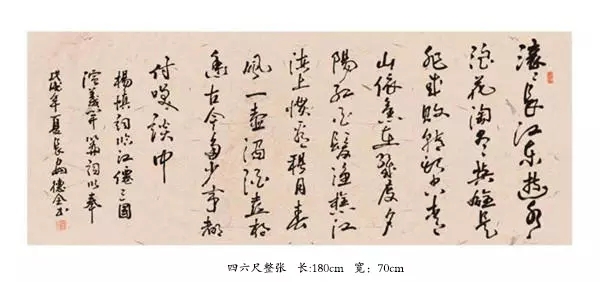 滚々長江东逝水
浪花淘尽英雄是
非成败转头空青
山依旧在几度夕
陽红白髮渔樵江
渚上惯看秋月春
风一壶浊酒喜相
逢古今多少事都
付笑谈中
楊慎詞临江僊三國
演義开篇詞以奉
戊戌年夏長安德全书
四六尺整张 长:180cm 宽：70cm